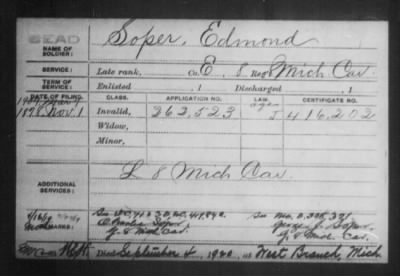 DEAD
NAME OF SOLDIER: Soper, Edmond
SERVICE: Late rank, Co. E, 8 Reg't Mich Cav.
TERM OF SERVICE: Enlisted , 1 Discharged , 1
DATE OF FILING. CLASS. APPLICATION NO. LAW. CERTIFICATE NO.
1878 Nov. 1 Invalid, 262,523 J 416,202
Widow,
Minor,
ADDITIONAL SERVICES: L 8 Mich Cav.
REMARKS: See
Charles Soper See
G. 8 Mich. Cav. G. 8 Mich. Cav.
Died September 4, 1920, at West Branch, Mich